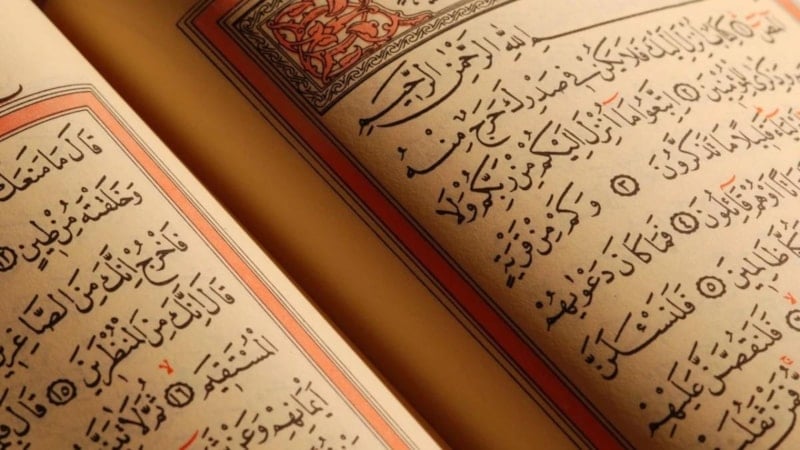 الله الرحمن الرحيم
المص ١ كِتَابٌ أُنْزِلَ إِلَيْكَ فَلَا يَكُنْ فِي صَدْرِكَ حَرَجٌ مِنْهُ
وَذِكْرَى لِلْمُؤْمِنِينَ ٢ اِتَّبِعُوا مَا أُنْزِلَ إِلَيْكُمْ مِنْ رَبِّكُمْ وَلَا
قَلِيلًا مَا تَذَكَّرُونَ ٣ وَكَمْ مِنْ قَرْيَةٍ
أَوْ هُمْ قَائِلُونَ ٤ فَمَا كَانَ دَعْوٰيهُمْ
ظَالِمِينَ ٥ فَلَنَسْـَٔلَنَّ
فَلَنَقُصَّنَّ عَلَيْهِمْ
فَمَنْ ثَقُلَتْ
قَالَ مَا مَنَعَكَ
وَخَلَقْتَهُ مِنْ طِينٍ
فَاخْرُجْ إِنَّكَ مِنَ الصَّاغِرِينَ
قَالَ إِنَّكَ مِنَ الْمُنْظَرِينَ ١٥ قَالَ
الْمُسْتَقِيمَ ١٦ ثُمَّ لَآتِيَنَّهُمْ
أَيْمَانِهِمْ وَعَنْ